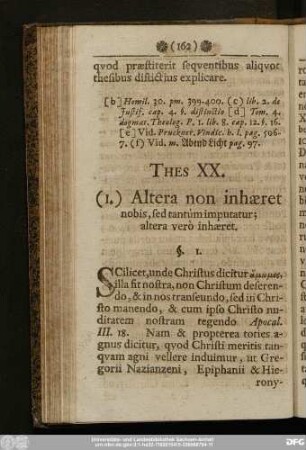 (162)
qvod præstiterit seqventibus aliqvot
thesibus distictius explicare.
[b] Homil. 30. pm. 399-400. (c) lib. 2. de
Justif. cap. 4. §. distinctio [d] Tom. 4.
dogmat. Theolog. P. 1. lib. 8. cap. 12. §. 16.
[e] Vid. Pruckner. Vindic. b. l. pag. 506-
7. (f) Vid. m. Abend Licht pag. 97.
THES XX.
(1.) Altera non inhæret
nobis, sed tantùm imputatur;
altera verò inhæret.
§. 1.
SCilicet, unde Christus dicitur ἄμωμος,
illa fit nostra, non Christum deseren-
do, & in nos transeundo, sed in Chri-
sto manendo, & cum ipso Christo nu-
ditatem nostram tegendo Apocal.
III. 18. Nam & propterea toties a-
gnus dicitur, qvod Christi meritis tan-
qvam agni vellere induimur, ut Gre-
gorii Nazianzeni, Epiphanii & Hie-
rony-
Universitäts- und Landesbibliothek Sachsen-Anhalt